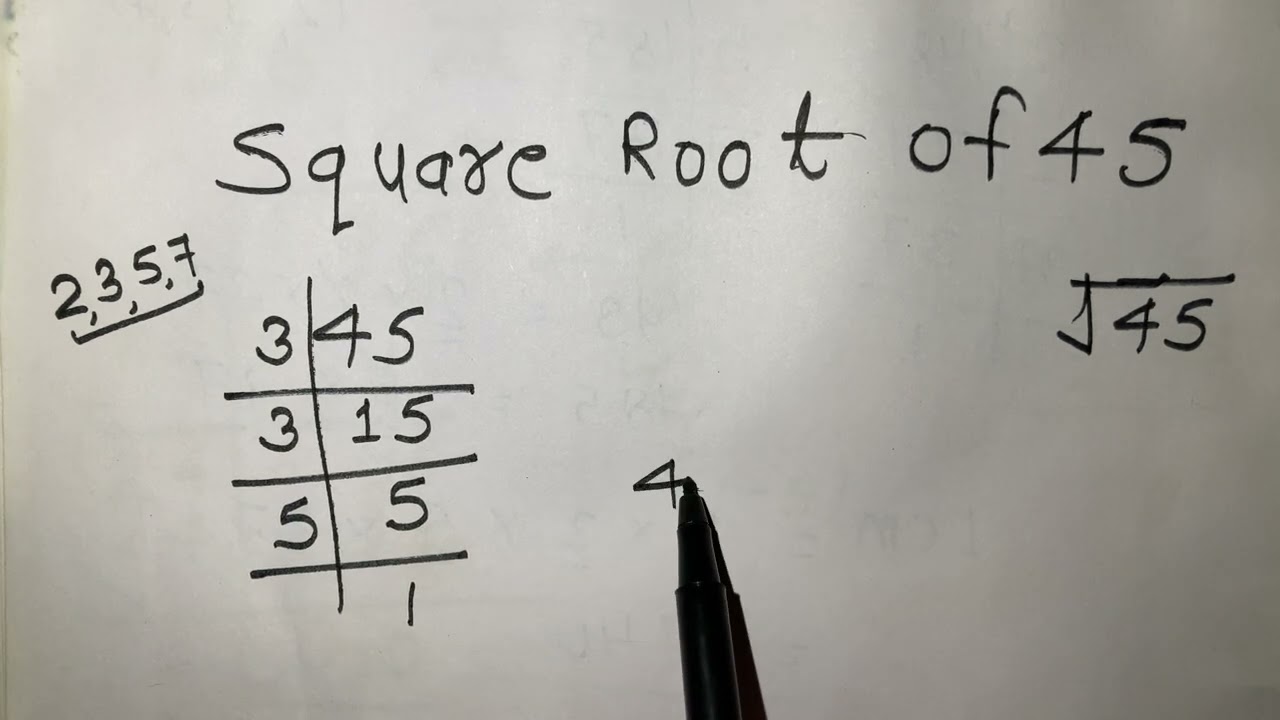 Square Root of 45
2,3,5,7
√45
3 45
3 15
5 5
1
4